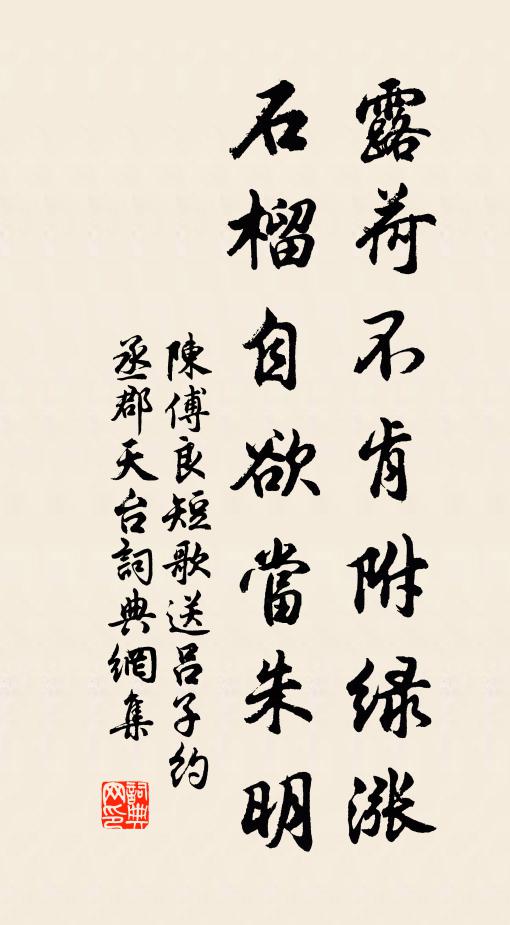 露荷不肯附绿涨
石榴自欲當朱明
陳傅良短歌送呂子約
丞郡天台詞典網集
詞典网印